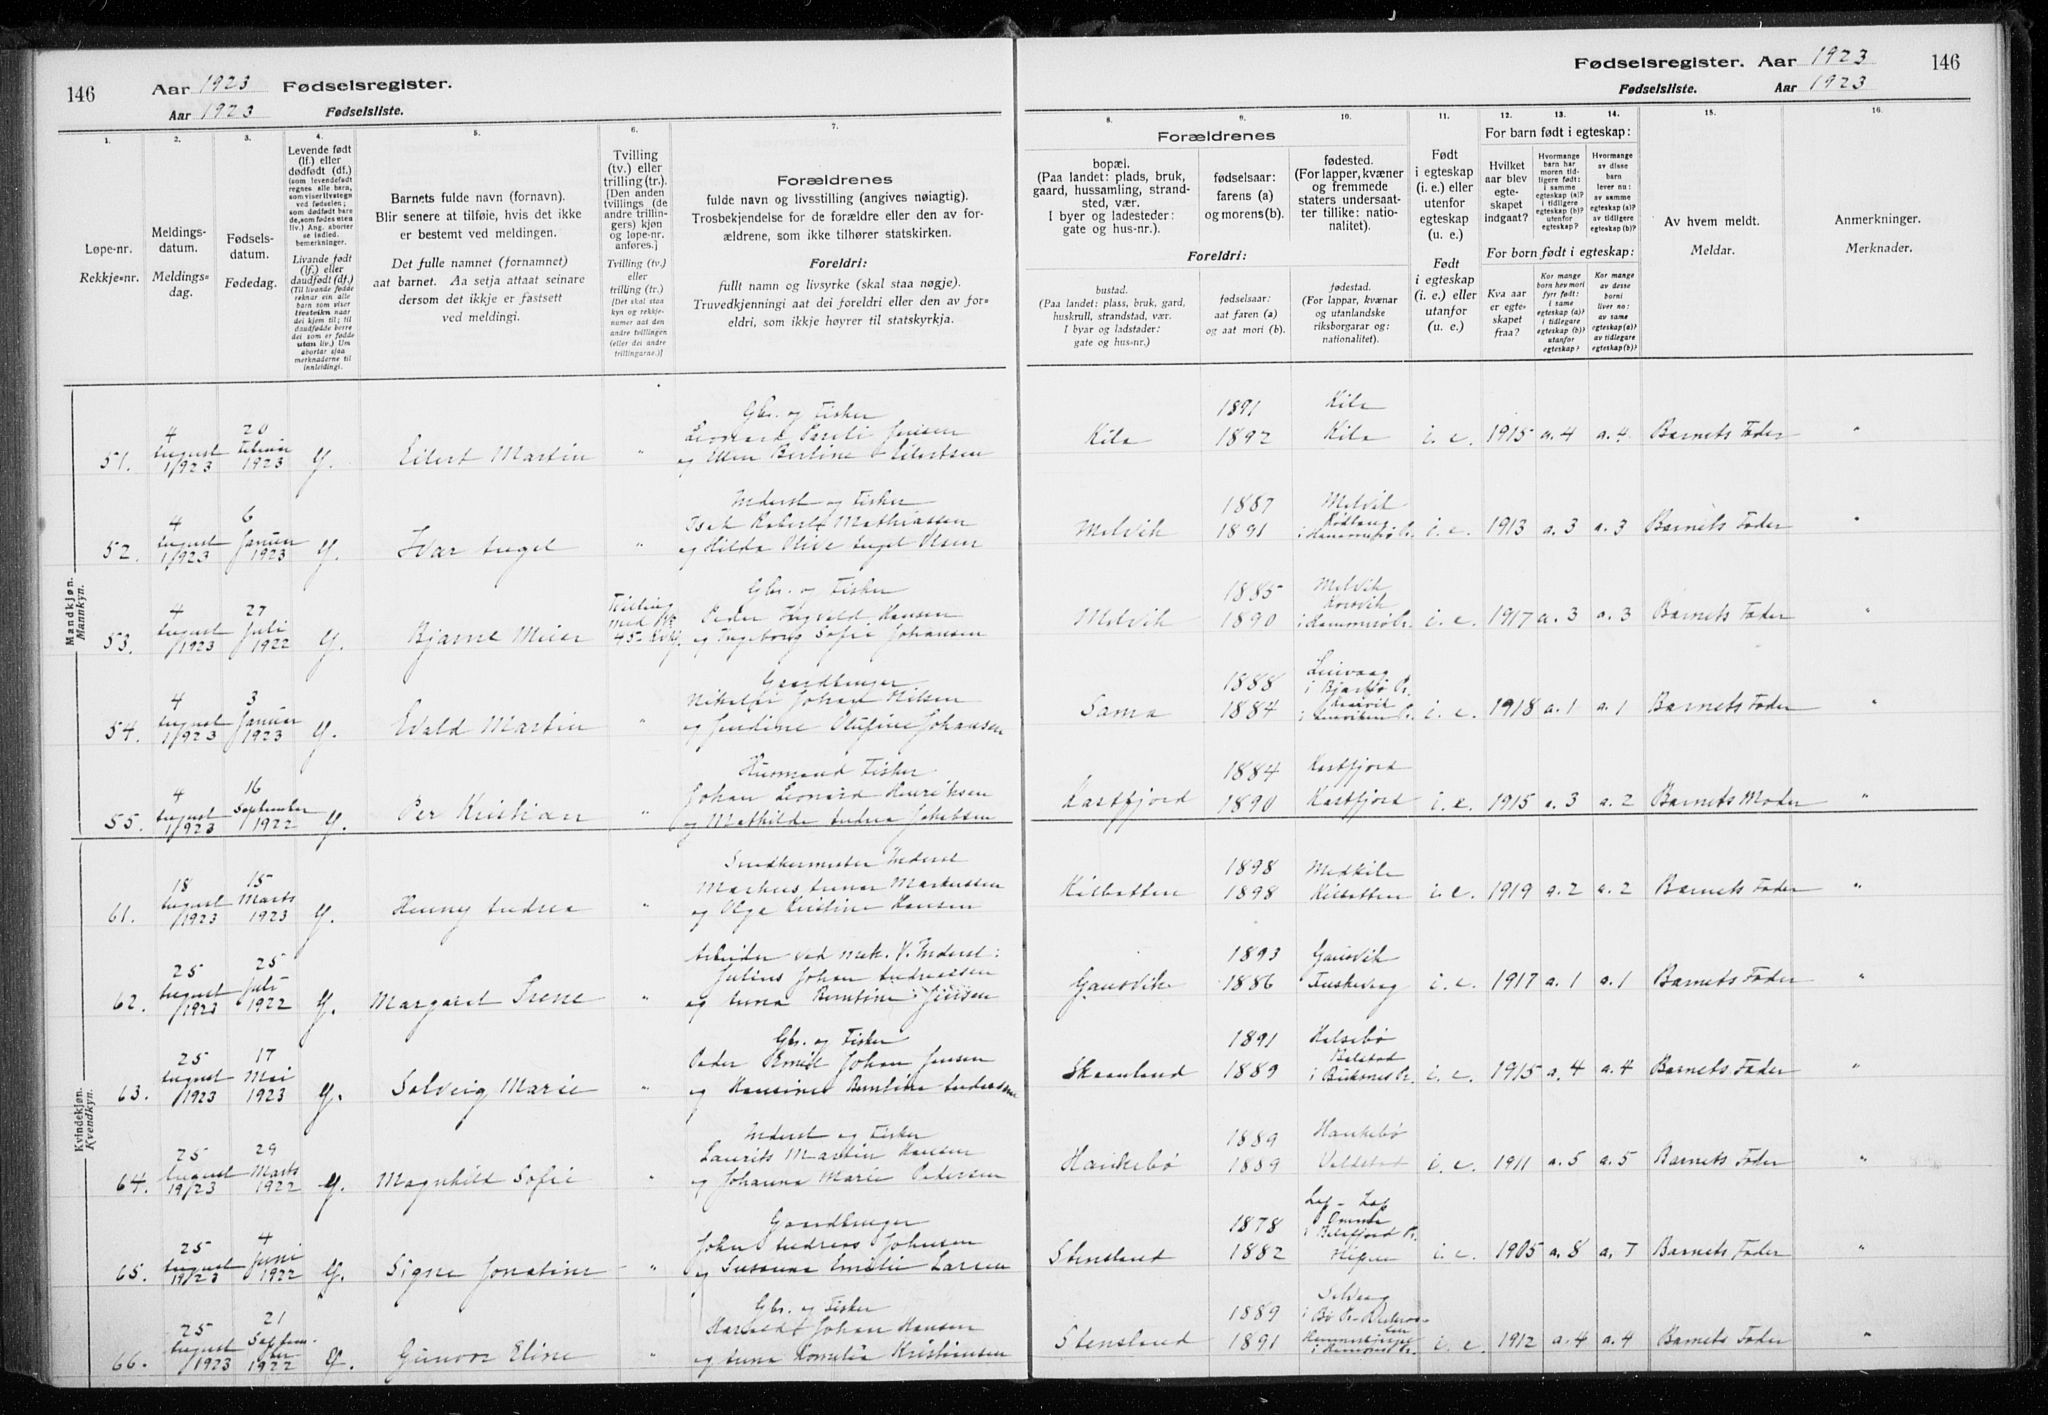 146
Aar 1923 Fødselsregister.
Aar 1923 Fødselsliste.
Fødselsregister. Aar 1923
146
Fødselsliste. Aar 1923
1.
Løpe-nr.
Rekkje=nr.
2.
Meldings-
datum.
Meldings=
dag.
3.
Fødsels-
datum.
Fødedag.
4.
Levende født
(lf.) eller
dødfødt (df.)
(som levendefødt
regnes alle barn,
som viser livstegn
ved fødselen;
som dødfødt barn
de, som fødes uten
liv.) Ang. aborter
se indled.
bemerkninger.
Livande født
(lf.) eller
daudfødt (df.)
5.
Barnets fulde navn (fornavn).
Blir senere at tilføie, hvis det ikke
er bestemt ved meldingen.
Det fulle namnet (fornamnet)
aat barnet. Aa setja attaat seinare
dersom det ikkje er fastsett
ved meldingi.
6.
Tvilling
(tv.) eller
trilling (tr.).
[Den anden
tvillings (de
andre trillin-
gers) kjøn
og løpe-nr.
anføres.]
Tvilling (tv.)
eller
trilling (tr.)
7.
Forældrenes
fulde navn og livsstilling (angives nøiagtig).
Trosbekjendelse for de forældre eller den av for-
ældrene, som ikke tilhører statskirken.
Foreldri:
fullt namn og livsyrke (skal staa nøgje).
Truvedkjenningi aat dei foreldri eller den av for=
eldri, som ikkje høyrer til statskyrkja.
Forældrenes
8.
bopæl.
(Paa landet: plads, bruk,
gaard, hussamling, strand-
sted, vær.
I byer og ladesteder:
gate og hus-nr.).
9.
fødselsaar:
farens (a)
og morens (b).
10.
fødested.
(For lapper, kvæner
og fremmede
staters undersaat-
ter tillike: natio-
nalitet).
Foreldri:
bustad.
(Paa landet: plass, bruk, gard,
huskrull, strandstad, vær.
I byar og ladstader:
gate og hus=nr.)
fødselsaar:
aat faren (a)
og aat mori (b).
fødestad.
(For lappar, kvænar
og utanlandske
riksborgarar og:
nationalitet).
11.
Født
i egteskap
(i. e.) eller
utenfor
egteskap
(u. e.)
Født
i egteskap
(i. e.) eller
utanfor
(u. e.).
12. 13. 14.
For barn født i egteskap:
Hvilket
aar blev
egte-
skapet
indgaat?
Hvormange
barn har
moren tid-
ligere født:
i samme
egteskap (a)?
i tidligere
egteskap (b)?
utenfor
egteskap?
Hvormange
av disse
barn
lever nu:
av samme
egteskap (a)?
av tidligere
egteskap (b)?
For born født i egteskap:
Kva aar
er egte=
skapet
fraa?
Kor mange
born hev mori
fyrr født:
i same
egteskap (a)?
i tidlegare
egteskap (b)?
utanfor
egteskap?
Kor mange
av desse
borni
liver no:
av same
egteskap (a)?
av tidlegare
egteskap (b)?
15.
Av hvem meldt.
Meldar.
16.
Anmerkninger.
Merknader.
Mandkjøn.
Mannkyn.
51. 4 August 1923 20 Februar 1923 lf. Eilert Martin " Gbr. og Fisker
Leonard Pareli Jensen
og Ellen Berline Eilertsen Kila 1891 1892 Kila Kila i. e. 1915 a. 4 a. 4 Barnets Fader "
52. 4 August 1923 6 Januar 1923 lf. Ivar Angel " Inderst og Fisker
Isak Robert Mathiassen
og Hilda Olive Angel Olsen Melvik 1887 1891 Melvik i. e. 1913 a. 3 a. 3 Barnets Fader "
53. 4 August 1923 27 Juli 1922 lf. Bjarne Meier Tvilling med Nr. 45 Gbr. og Fisker
Peder Ingvald Hansen
og Ingeborg Sofie Johansen Melvik 1885 1890 Melvik i. e. 1917 a. 3 a. 3 Barnets Fader "
54. 4 August 1923 3 Januar 1923 lf. Evald Martin " Gaardbruger
Nikolai Johan Nilsen
og Jendine Olufine Johansen Sama 1888 1884 i. e. 1918 a. 1 a. 1 Barnets Fader "
55. 4 August 1923 16 September 1922 lf. Per Kristian " Husmand Fisker
Johan Leonard Henriksen
og Mathilde Andrea Jakobsen Kastfjord 1884 1890 Kastfjord Kastfjord i. e. 1915 a. 3 a. 2 Barnets Moder "
Kvindekjøn.
Kvendkyn.
61. 18 August 1923 15 Marts 1923 lf. Henny Andrea " Snedkermester Inderst
Markus Einar Markussen
og Olga Kristine Hansen Kilbotten 1898 1898 Medkila Kilbotten i. e. 1919 a. 2 a. 2 Barnets Fader "
62. 25 August 1923 25 Juli 1922 lf. Margaret Irene " Arbeider ved mek. V. Inderst:
Julius Johan Andreassen
og Anna Berntine Jensen Gansvik 1893 1886 Gansvik i. e. 1917 a. 1 a. 1 Barnets Fader "
63. 25 August 1923 17 Mai 1923 lf. Solveig Marie " Gbr. og Fisker
Peder Emil Johan Jensen
og Hansine Berntine Andreassen Skaanland 1891 1889 i Buksnes Pr. i. e. 1915 a. 4 a. 4 Barnets Fader "
64. 25 August 1923 29 Marts 1922 lf. Magnhild Sofie " Inderst og Fisker
Laurits Martin Hansen
og Johanna Marie Pedersen Haukebø 1889 1889 Haukebø Voldstad i. e. 1911 a. 5 a. 5 Barnets Fader "
65. 25 August 1923 4 Juni 1922 lf. Signe Jonatine " Gaardbruger
John Andreas Johnsen
og Susanna Emilie Larsen Stensland 1878 1882 i. e. 1905 a. 8 a. 7 Barnets Fader "
66. 25 August 1923 21 September 1922 lf. Gunvor Eline " Gbr. og Fisker
Harald Johan Hansen
og Anna Kornelia Kristiansen Stensland 1889 1891 i. e. 1912 a. 4 a. 4 Barnets Fader "